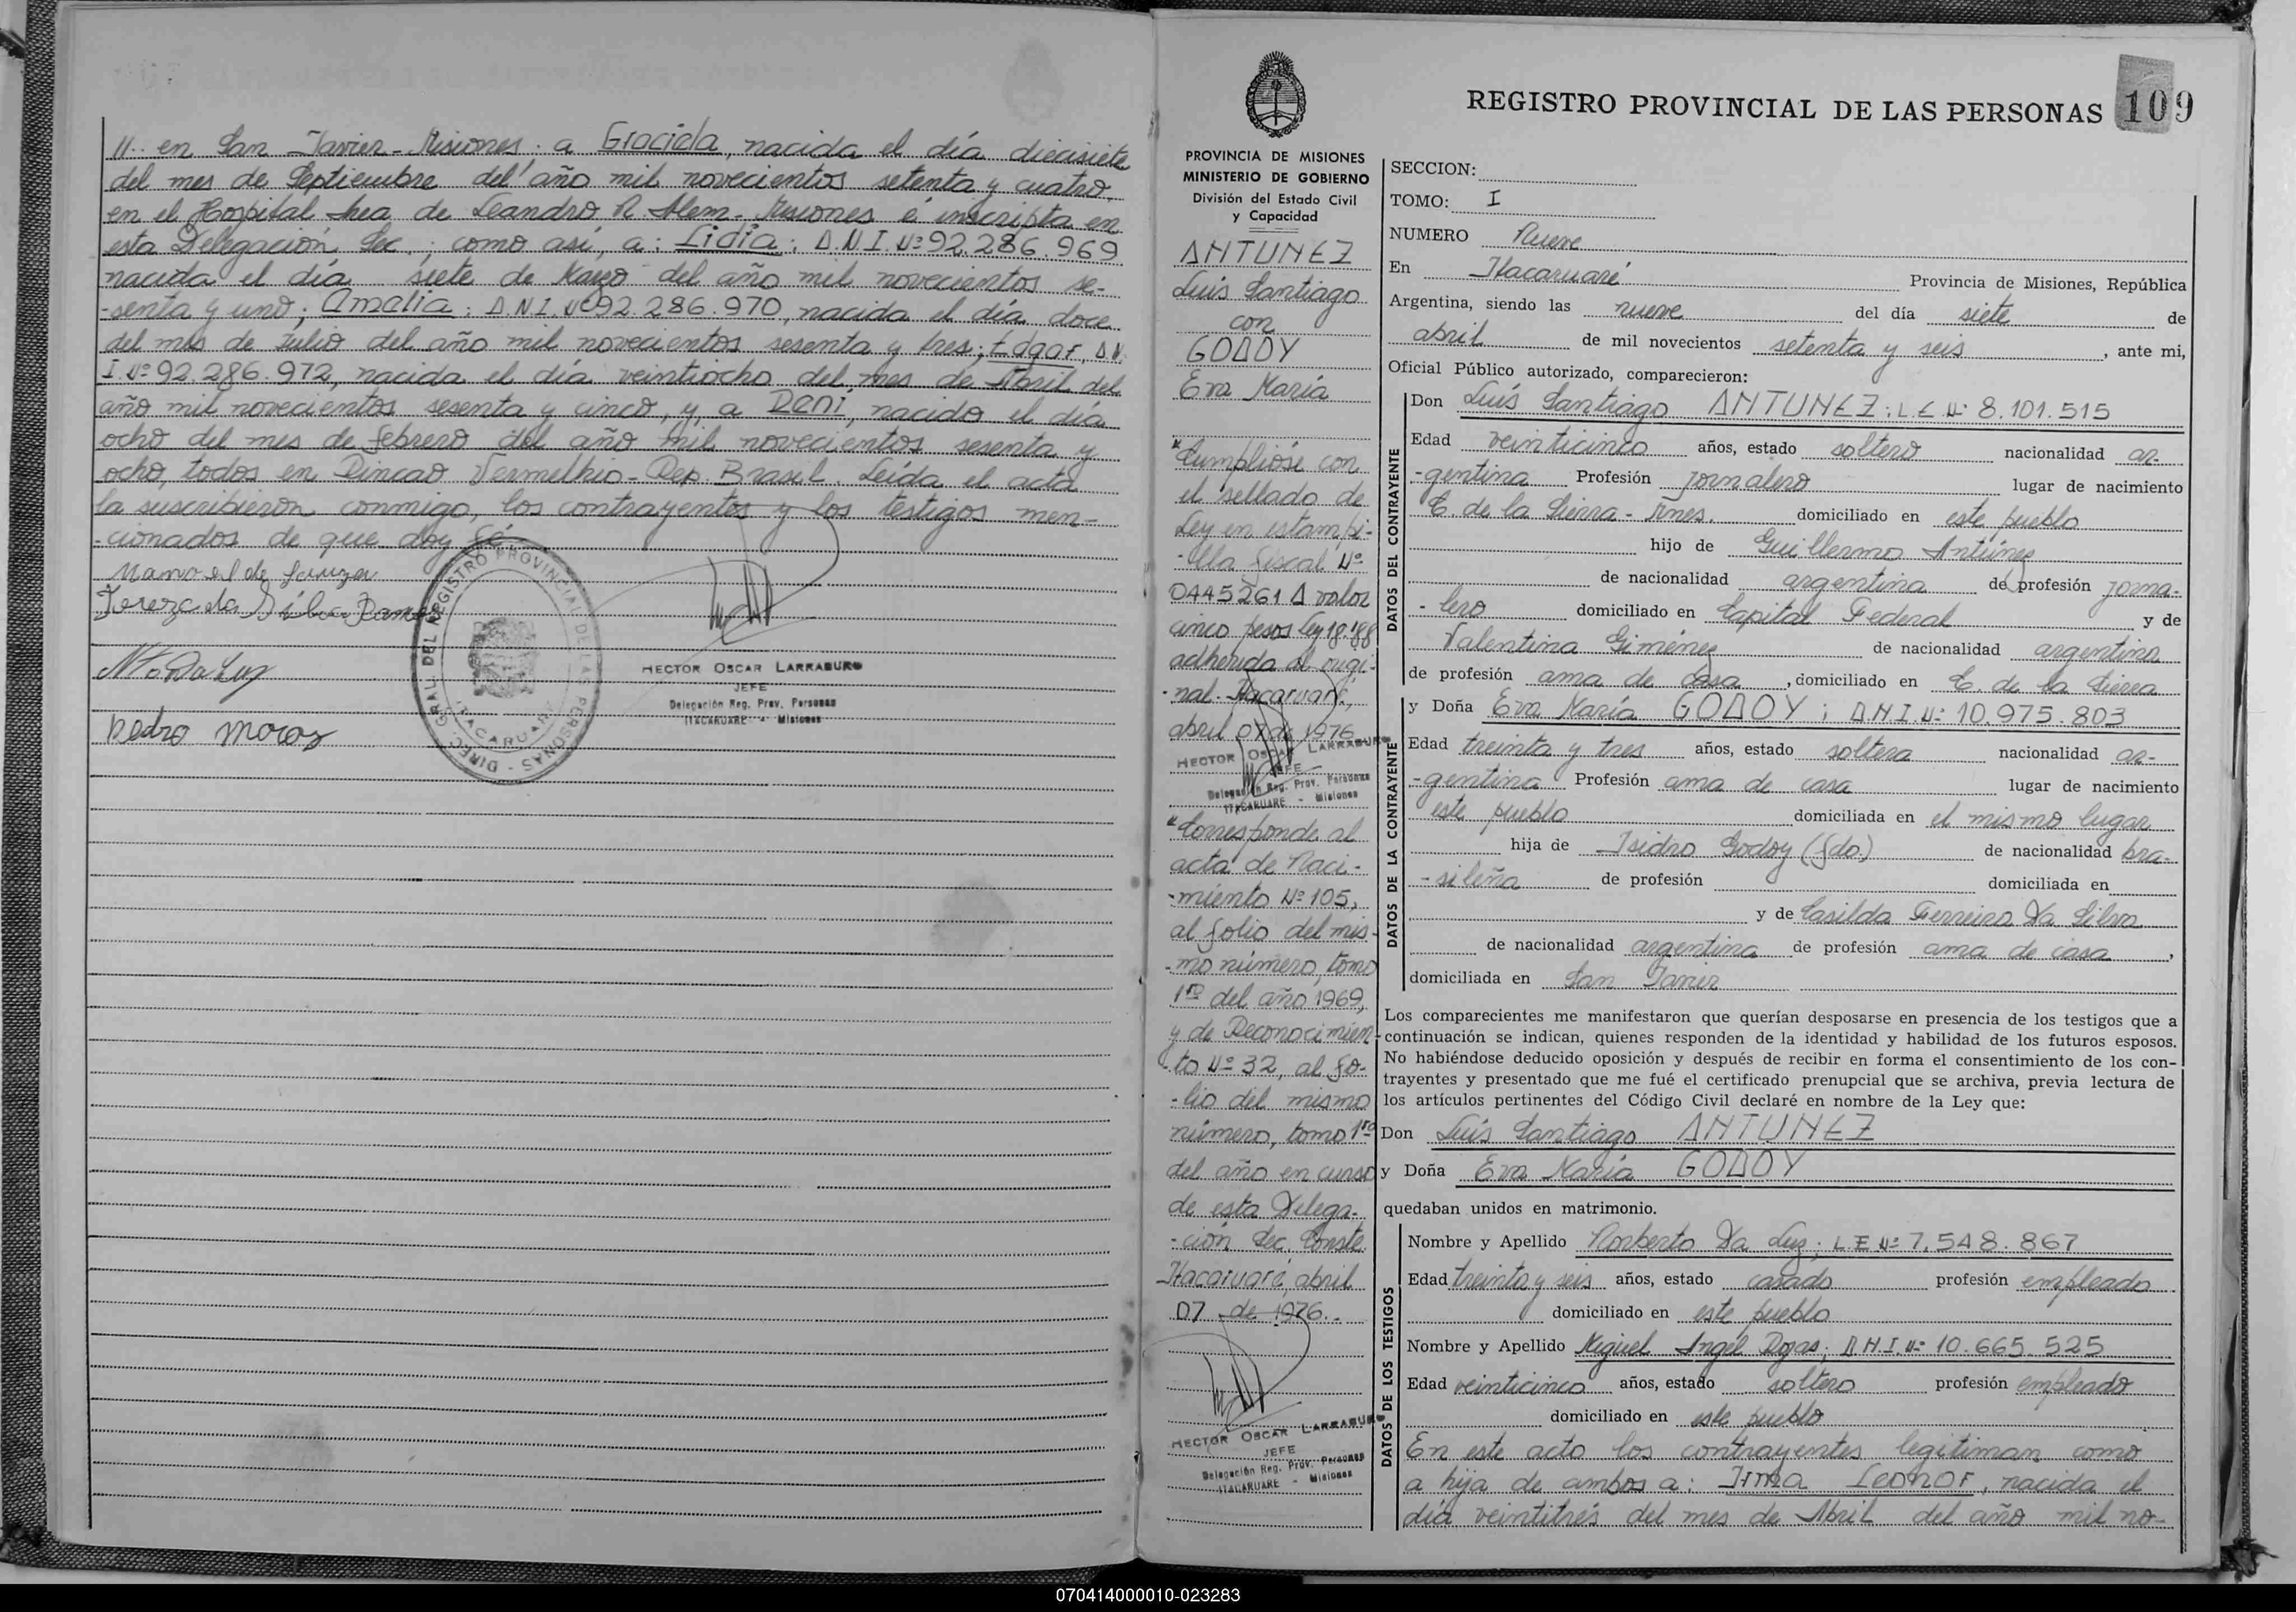 11.. en San Javier - Misiones. a Gracida, nacida el día diecisiete
del mes de Septiembre del año mil novecientos setenta y cuatro,
en el Hospital Área de Leandro N Alem - Misiones é inscripta en
esta Delegación, Sec.; como así, a: Lidia: D.N.I. Nº 92.286.969
nacida el día siete de Marzo del año mil novecientos se-
-senta y uno; Amalia: D.N.I. Nº 92.286.970, nacida el día doce
del mes de Julio del año mil novecientos sesenta y tres; Edgar, D.N.
I. Nº 92.286.972, nacida el día veintiocho del mes de Abril del
año mil novecientos sesenta y cinco, y, a Reni, nacido el día
ocho del mes de febrero del año mil novecientos sesenta y
ocho, todos en Rincao Vermelhio - Rep. Brasil. Leída el acta
la suscribieron conmigo, los contrayentes y los testigos men-
-cionados de que doy fé.
Manoel de Souza
Tereza da Silva Ramos
N. Da Luz
Pedro Moroz
DIREC. GRAL. DEL REGISTRO PROVINCIAL DE LAS PERSONAS
ITACARUARE
HECTOR OSCAR LARRABURO
JEFE
Delegación Reg. Prov. Personas
ITACARUARE - Misiones
REGISTRO PROVINCIAL DE LAS PERSONAS 109
PROVINCIA DE MISIONES
MINISTERIO DE GOBIERNO
División del Estado Civil
y Capacidad
ANTUNEZ
Luis Santiago
con
GODOY
Eva María
"Cumplióse con
el sellado de
Ley en estampi-
-lla fiscal Nº
0445261 A valor
cinco pesos Ley 18.188
adherida al origi-
-nal. Itacaruaré,
abril 07 de 1976
HECTOR OSCAR LARRABURO
JEFE
Delegación Reg. Prov. Personas
ITACARUARE - Misiones
"Corresponde al
acta de Naci-
-miento Nº 105,
al folio del mis-
-mo número, tomo
1ro del año 1969,
y de Reconocimien-
to Nº 32, al fo-
-lio del mismo
número, tomo 1ro
del año en curso
de esta Delega-
-ción Sec. Conste.
Itacaruaré, abril
07 de 1976..
HECTOR OSCAR LARRABURO
JEFE
Delegación Reg. Prov. Personas
ITACARUARE - Misiones
SECCION:
TOMO: I
NUMERO Nueve
En Itacaruaré Provincia de Misiones, República
Argentina, siendo las nueve del día siete de
abril de mil novecientos setenta y seis, ante mi,
Oficial Público autorizado, comparecieron:
DATOS DEL CONTRAYENTE
Don Luis Santiago ANTUNEZ: L.E. Nº 8.101.515
Edad veinticinco años, estado soltero nacionalidad ar-
-gentina Profesión jornalero lugar de nacimiento
C. de la Sierra - Mnes. domiciliado en este pueblo
hijo de Guillermo Antúnez
de nacionalidad argentina de profesión jorna-
-lero domiciliado en Capital Federal y de
Valentina Giménez de nacionalidad argentina
de profesión ama de casa, domiciliado en C. de la Sierra
DATOS DE LA CONTRAYENTE
y Doña Eva María GODOY; D.N.I. Nº 10.975.803
Edad treinta y tres años, estado soltera nacionalidad ar-
-gentina Profesión ama de casa lugar de nacimiento
este pueblo domiciliada en el mismo lugar
hija de Isidro Godoy (fdo.) de nacionalidad bra-
-sileña de profesión domiciliada en
y de Casilda Ferreira Da Silva
de nacionalidad argentina de profesión ama de casa,
domiciliada en San Javier
Los comparecientes me manifestaron que querían desposarse en presencia de los testigos que a
continuación se indican, quienes responden de la identidad y habilidad de los futuros esposos.
No habiéndose deducido oposición y después de recibir en forma el consentimiento de los con-
trayentes y presentado que me fué el certificado prenupcial que se archiva, previa lectura de
los artículos pertinentes del Código Civil declaré en nombre de la Ley que:
Don Luis Santiago ANTUNEZ
y Doña Eva María GODOY
quedaban unidos en matrimonio.
DATOS DE LOS TESTIGOS
Nombre y Apellido Norberto Da Luz; L E Nº 7.548.867
Edad treinta y seis años, estado casado profesión empleado
domiciliado en este pueblo
Nombre y Apellido Miguel Angel Rojas; D.N.I. Nº 10.665.525
Edad veinticinco años, estado soltero profesión empleado
domiciliado en este pueblo
En este acto los contrayentes legitiman como
a hija de ambos a: Irma Leonor, nacida el
día veintitrés del mes de Abril del año mil no-
070414000010-023283